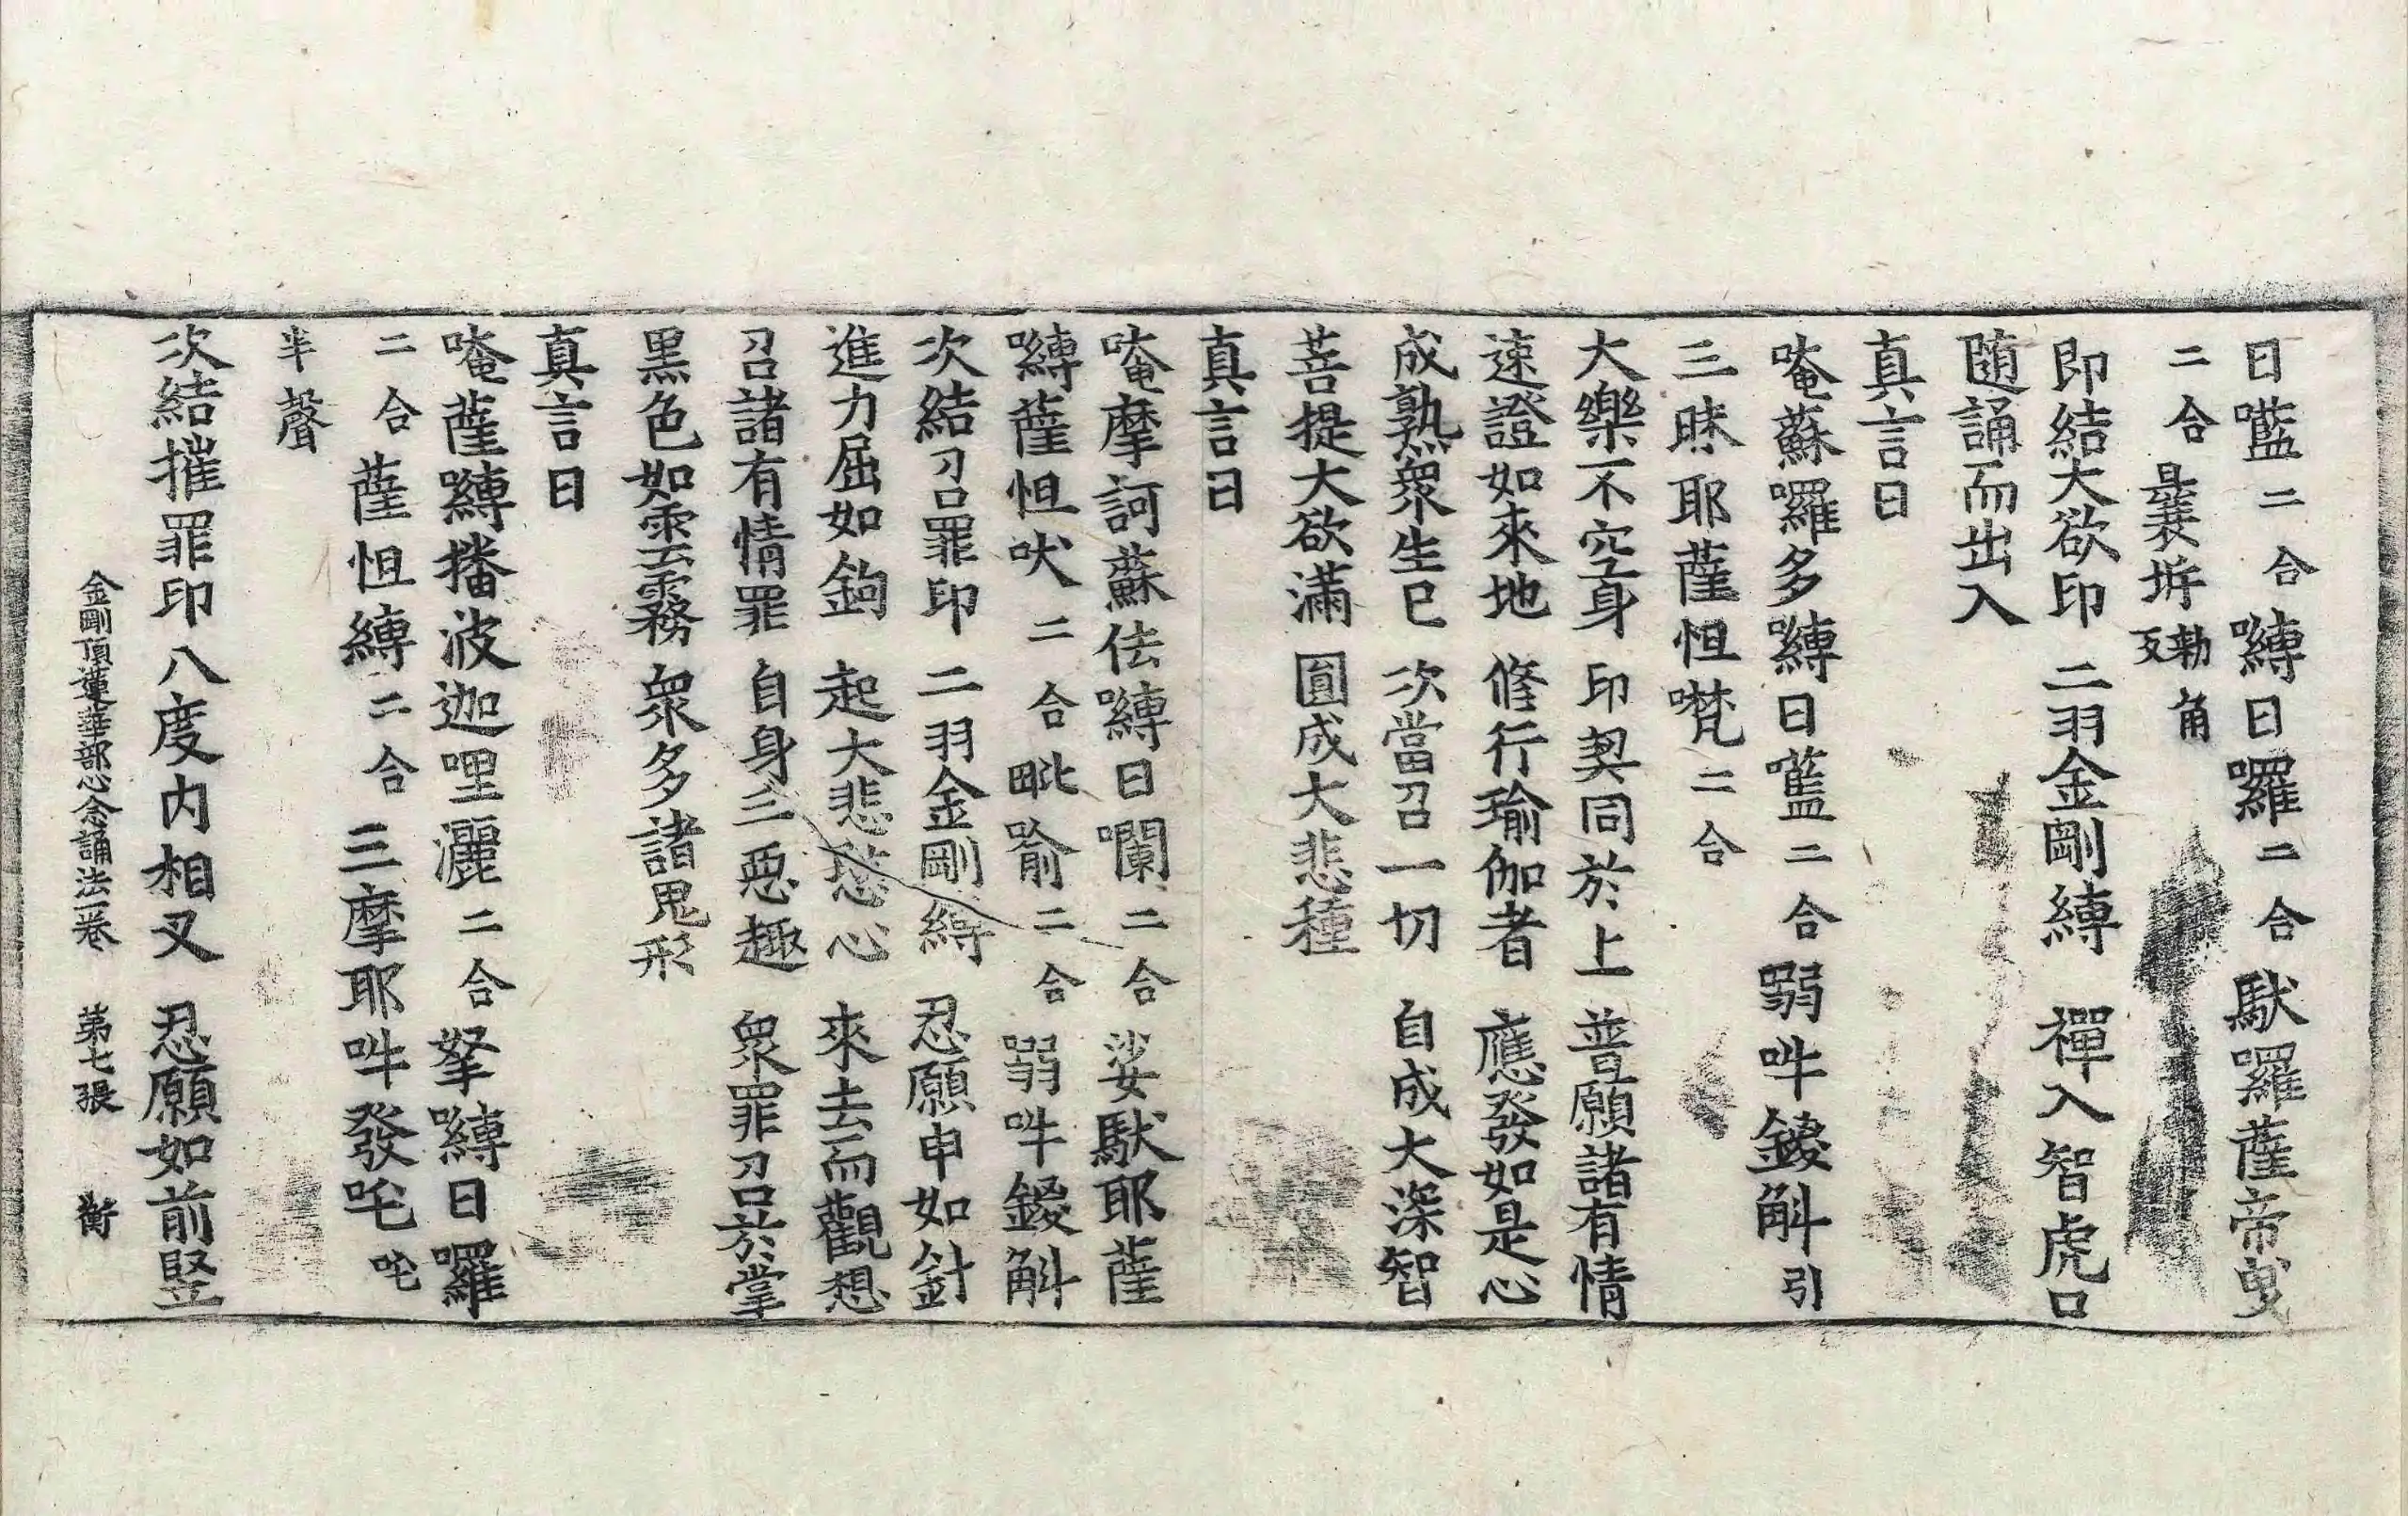 日㘕二合嚩日羅二合馱囉薩帝曳
二合曩坼勅角反
即結大欲印 二羽金剛縛 禪入智虎口
隨誦而出入
真言曰
唵蘇囉多嚩日㘕二合弱吽鑁斛引
三昧耶薩怛㘕二合
大樂不空身 印契同於上 普願諸有情
速證如來地 修行瑜伽者 應發如是心
成熟衆生已 次當召一切 自成大深智
菩提大欲滿 圓成大悲種
真言曰
唵摩訶蘇佉嚩日㘓二合娑馱耶薩
嚩薩怛吠二合毗喻二合弱吽鑁斛
次結召罪印 二羽金剛縛 忍願申如針
進力屈如鉤 起大悲愍心 來去而觀想
召諸有情罪 自身三惡趣 衆罪召於掌
黑色如雲霧 衆多諸鬼形
真言曰
唵薩嚩播波迦哩灑二合拏嚩日囉
二合薩怛縛二合三摩耶吽發吒吒
半聲
次結摧罪印 八度内相叉 忍願如前竪
金剛頂蓮華部心念誦法一卷 第七張 衡